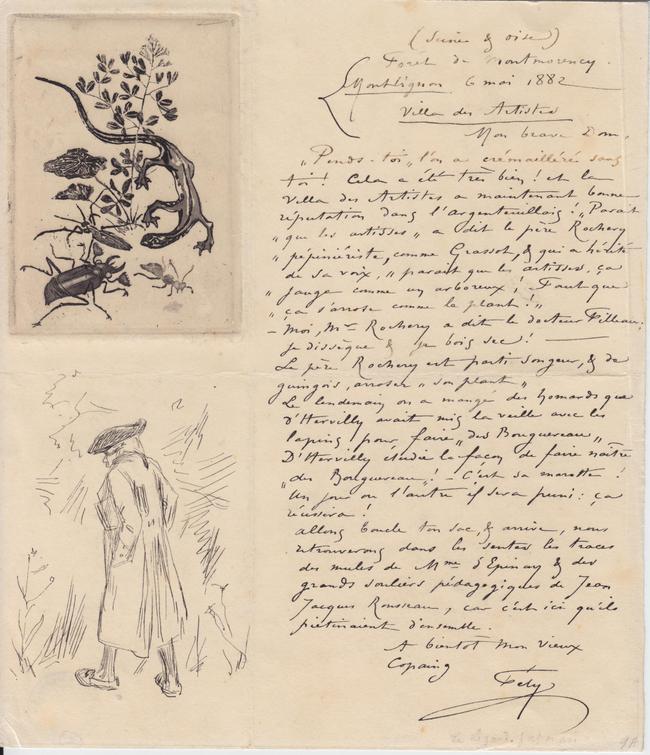 (Seine & oise)
Foret de Montmorency.
Montlignon 6 mai 1882
Villa des Artistes
Mon brave Dom,
„Pends-toi„ l'on a crémailléré sans
toi! Cela a été très bien! et la
Villa des Artistes a maintenant bonne
réputation dans l'Argenteuillois! „Parait
„que les artisses„ a dit le père Rochery
„pépiniériste, comme Grassot, & qui a hérité
de sa voix, „parait que les artisses, ça
„jauge comme un arboreux! Faut que
„ça s'arrose comme la plant!„
- Moi, Mr Rochery a dit le docteur Filleau:
je dissèque & je bois sec! —
Le père Rochery est parti songeur, & de
guingois, arroser „son plant„
Le lendemain on a mangé des homards que
D'Hervilly avait mis la veille avec les
lapins pour faire „des Bouguereau„ —
D'Hervilly étudie la façon de faire naître
„des Bouguereau„! - C'est sa marotte!
Un jour ou l'autre il sera puni: ça
réussira!
allons boucle ton sac, & arrive, nous
retrouverons dans les sentes les traces
des mules de Mme d'Epinay & des
grands souliers pédagogiques de Jean
Jacques Rousseau, car c'est ici qu'ils
piétinaient d'ensemble.
A bientot mon vieux
Copaing
Fély